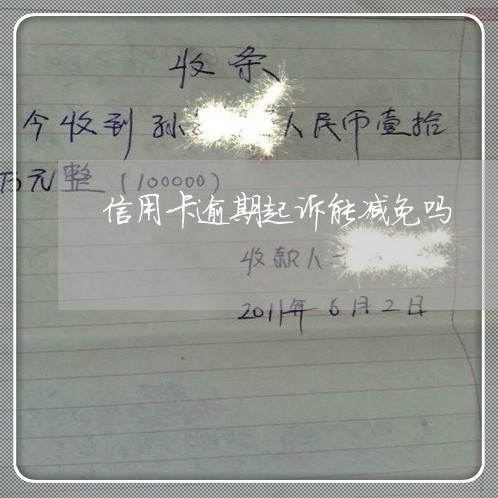 收条
今收到孙 人民币壹拾
万元整(100000)
信用卡逾期起诉能减免吗
收款人
2011年6月2日